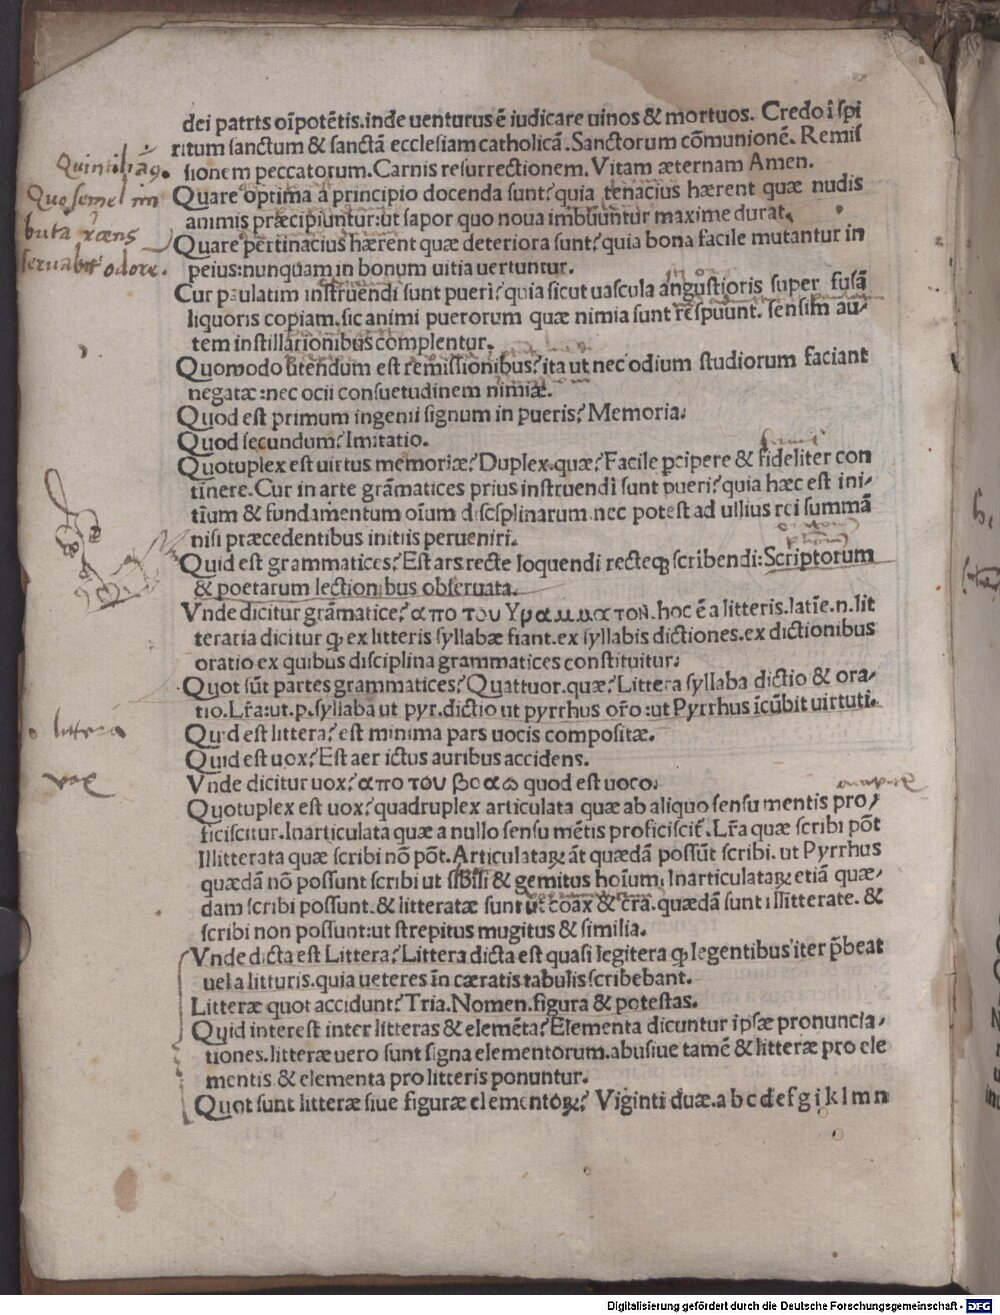 dei patrts oīpotētis.inde uenturus ē iudicare uinos & mortuos. Credo ī spi
ritum sanctum & sanctā ecclesiam catholicā.Sanctorum cōmunionē. Remis
sionem peccatorum.Carnis resurrectionem.Vitam æternam Amen.
Quare optima a principio docenda sunt? quia tenacius hærent quæ nudis
animis præcipiuntur:ut sapor quo noua imbuuntur maxime durat.
Quare pertinacius hærent quæ deteriora sunt? quia bona facile mutantur in
peius:nunquam in bonum uitia uertuntur.
Cur paulatim instruendi sunt pueri? quia sicut uascula angustioris super fusā
liquoris copiam.sic animi puerorum quæ nimia sunt respuunt. sensim au-
tem instillarionibus complentur.
Quomodo utendum est remissionibus? ita ut nec odium studiorum faciant
negatæ:nec ocii consuetudinem nimiæ.
Quod est primum ingenii signum in pueris? Memoria.
Quod secundum? Imitatio.
Quotuplex est uirtus memoriæ? Duplex.quæ? Facile ꝑcipere & fideliter con
tinere.Cur in arte grāmatices prius instruendi sunt pueri? quia hæc est ini-
tium & fundamentum oīum discsplinarum.nec potest ad ullius rei summā
nisi præcedentibus initiis perueniri.
Quid est grammatices? Est ars recte loquendi recteqꝫ scribendi:Scriptorum
& poetarum lectionibus obseruata.
Vnde dicitur grāmatice? απο του Υραμματον.hoc ē a litteris.latīe.n.lit
teraria dicitur ꝙ ex litteris syllabæ fiant.ex syllabis dictiones.ex dictionibus
oratio ex quibus disciplina grammatices constituitur.
Quot sūt partes grammatices? Quattuor.quæ? Littera syllaba dictio & ora-
tio.Lr̄a:ut.p.syllaba ut pyr.dictio ut pyrrhus or̄o:ut Pyrrhus īcūbit uirtuti.
Quid est littera? est minima pars uocis compositæ.
Quid est uox? Est aer ictus auribus accidens.
Vnde dicitur uox? απο του βοαω quod est uoco.
Quotuplex est uox? quadruplex articulata quæ ab aliquo sensu mentis pro-
ficiscitur.Inarticulata quæ a nullo sensu mētis proficiscit̄.Lr̄a quæ scribi pōt
Illitterata quæ scribi nō pōt.Articulataꝝ āt quædā possūt scribi.ut Pyrrhus
quædā nō possunt scribi ut sibili & gemitus hoīum.Inarticulataꝝ etiā quæ-
dam scribi possunt.& litteratæ sunt ut coax & cra.quædā sunt illitterate. &
scribi non possunt:ut strepitus mugitus & similia.
Vnde dicta est Littera? Littera dicta est quasi legitera ꝙ legentibus iter p̄beat
uel a litturis.quia ueteres in cæratis tabulis scribebant.
Litteræ quot accidunt? Tria.Nomen.figura & potestas.
Quid interest inter litteras & elemēta? Elementa dicuntur ipsæ pronuncia-
tiones.litteræ uero sunt signa elementorum.abusiue tamē & litteræ pro ele
mentis & elementa pro litteris ponuntur.
Quot sunt litteræ siue figuræ elementoꝝ? Viginti duæ.a b c d e f g i k l m n
Quo semel im
buta
seruabit odorē.
littera
vox
Digitalisierung gefördert durch die Deutsche Forschungsgemeinschaft - DFG